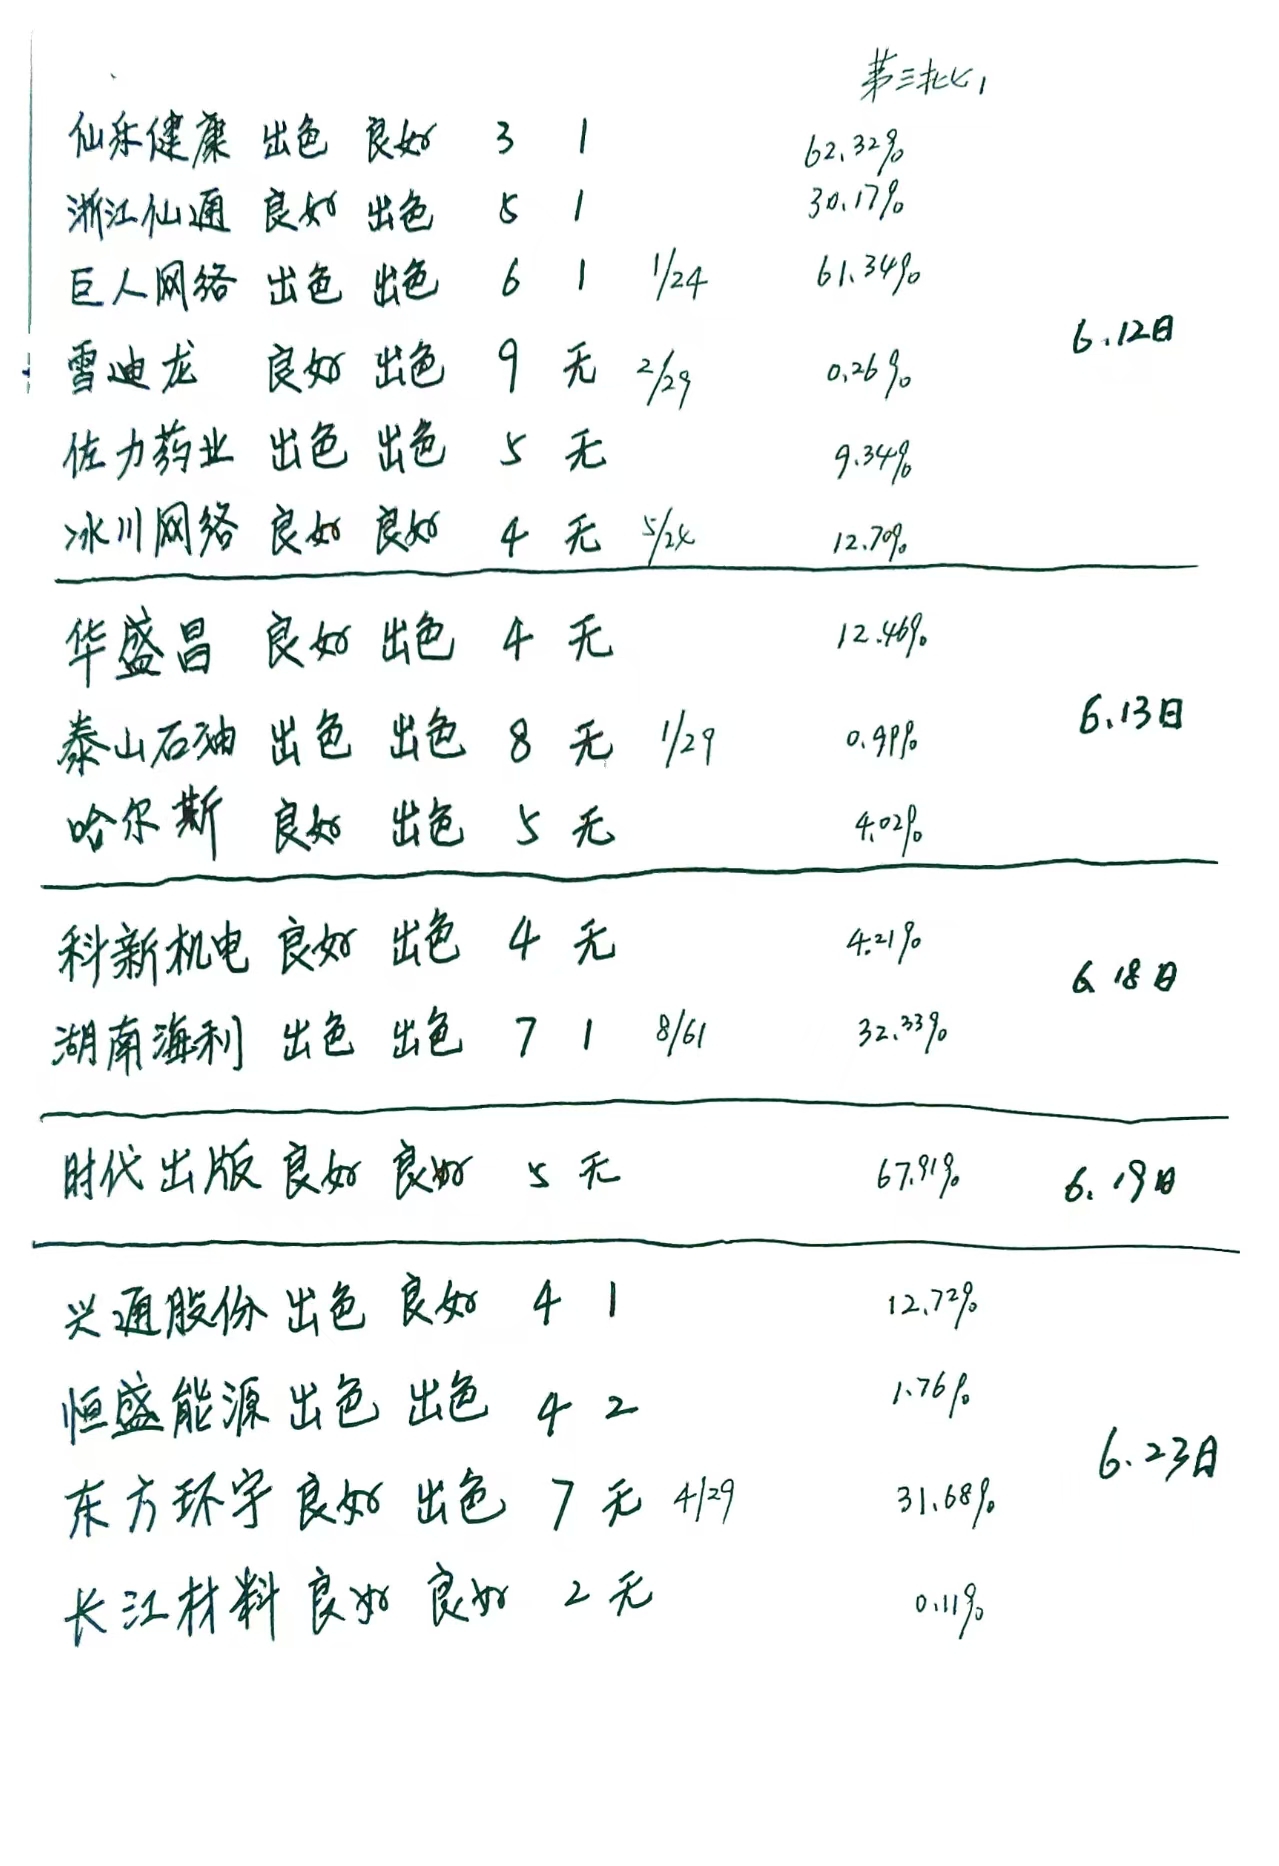 第三批1
仙乐健康 出色 良好 3 1 62.32%
浙江仙通 良好 出色 5 1 30.17%
巨人网络 出色 出色 6 1 1/24 61.34%
6.12日
雪迪龙 良好 出色 9 无 2/29 0.26%
佐力药业 出色 出色 5 无 9.34%
冰川网络 良好 良好 4 无 5/24 12.70%
华盛昌 良好 出色 4 无 12.46%
6.13日
泰山石油 出色 出色 8 无 1/29 0.99%
哈尔斯 良好 出色 5 无 4.02%
科新机电 良好 出色 4 无 4.21%
6.18日
湖南海利 出色 出色 7 1 8/61 32.33%
时代出版 良好 良好 5 无 67.91% 6.19日
兴通股份 出色 良好 4 1 12.72%
恒盛能源 出色 出色 4 2 1.76%
6.23日
东方环宇 良好 出色 7 无 4/29 31.68%
长江材料 良好 良好 2 无 0.11%